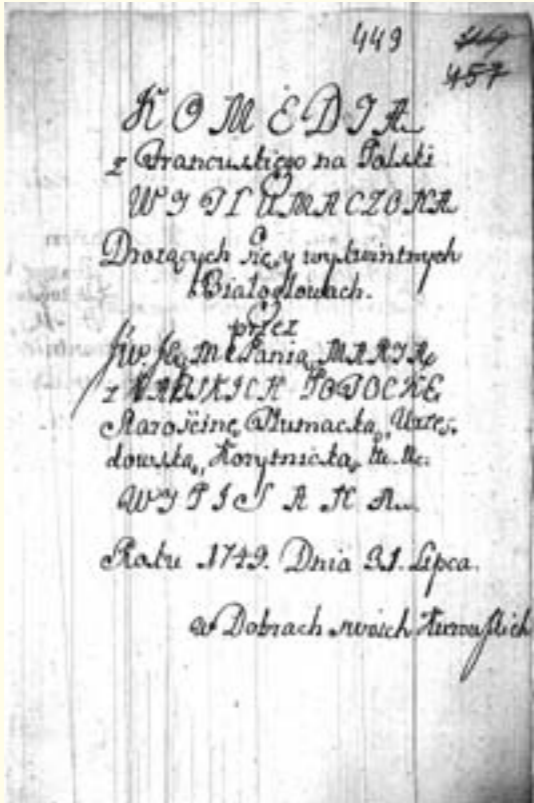 449
457
KOMEDIA
z Francuskiego na Polski
WYTŁUMACZONA
Drożących się, y wykwintnych
Białogłowach.
przez
MARIĄ
z KĄTSKICH POTOCKĘ
Starościnę, Tłumacką, Urzę-
dowską, Korytnicką, &c. &c.
WYPISANA
Roku 1749. Dnia 31. Lipca.
w Dobrach swoich